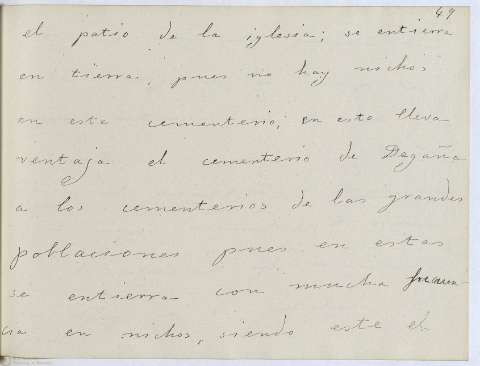 49
el patio de la iglesia; se entierra
en tierra, pues no hay nichos
en este cementerio; en esto lleva
ventaja el cementerio de Degaña
a los cementerios de las grandes
poblaciones pues en estas
se entierra con mucha frecuen-
cia en nichos, siendo este el